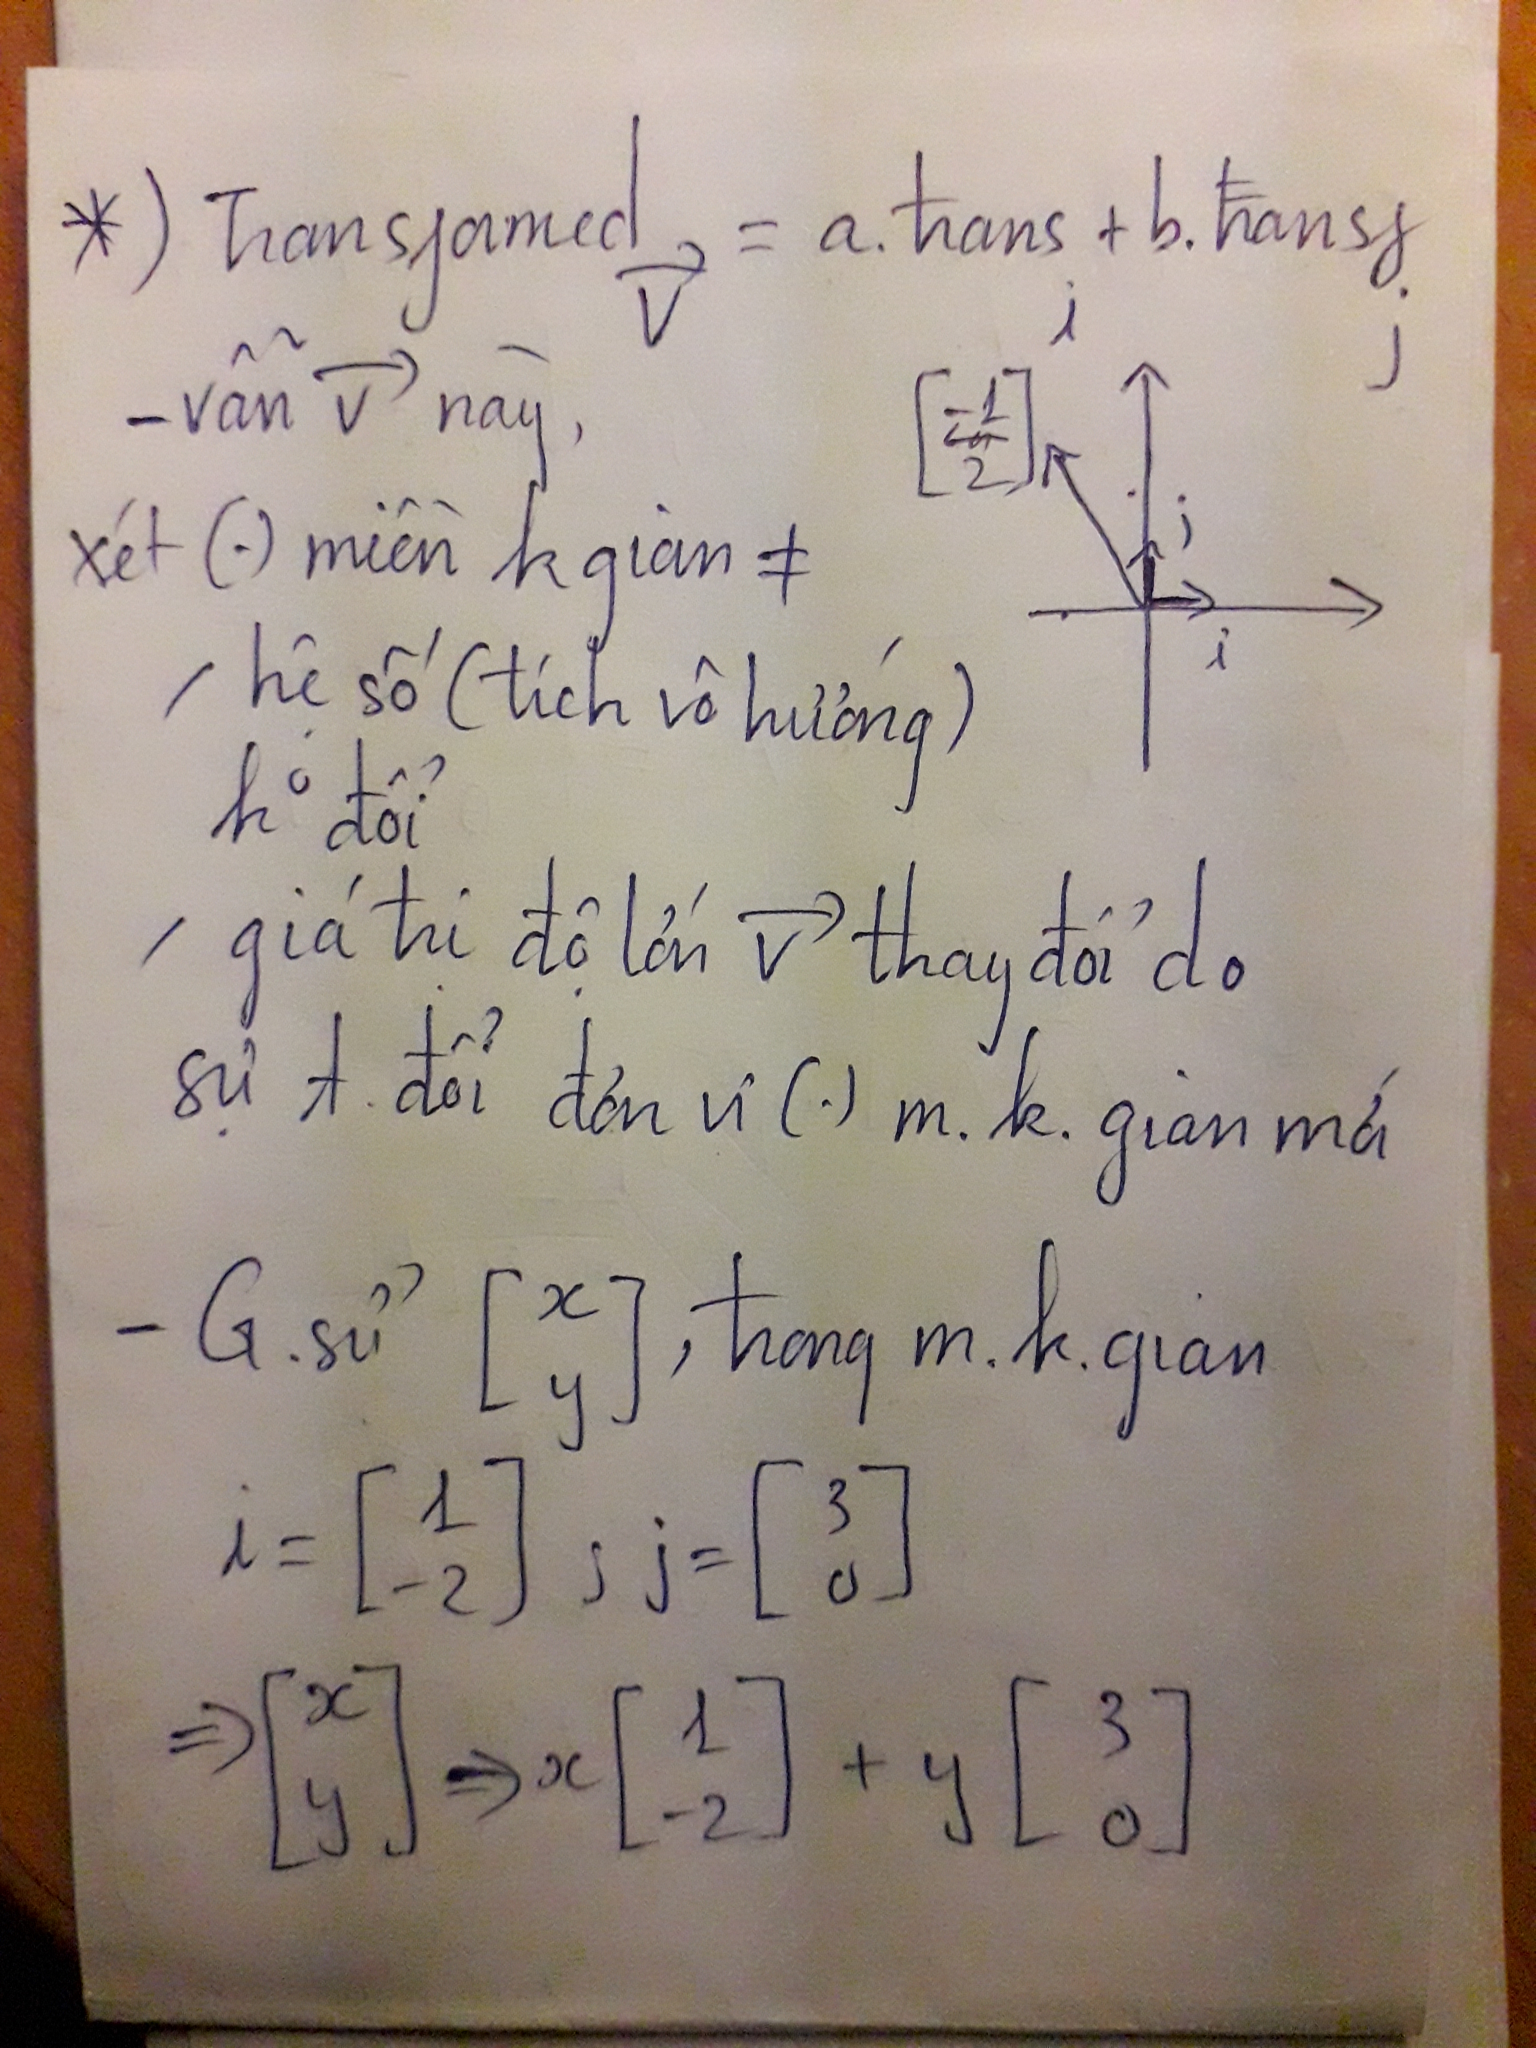 *) Transformed v = a. trans i + b. trans j
- vẫn v này,
[-1
2]
xét (.) miền k gian ≠
j
i
, hệ số (tích vô hướng)
kº đổi
, giá trị độ lớn v thay đổi do
sự t. đổi đơn vị (.) m. k. gian mới
- G. sử [x
y], trong m. k. gian
i = [1
-2] ; j = [3
0]
⇒ [x
y] ⇒ x [1
-2] + y [3
0]